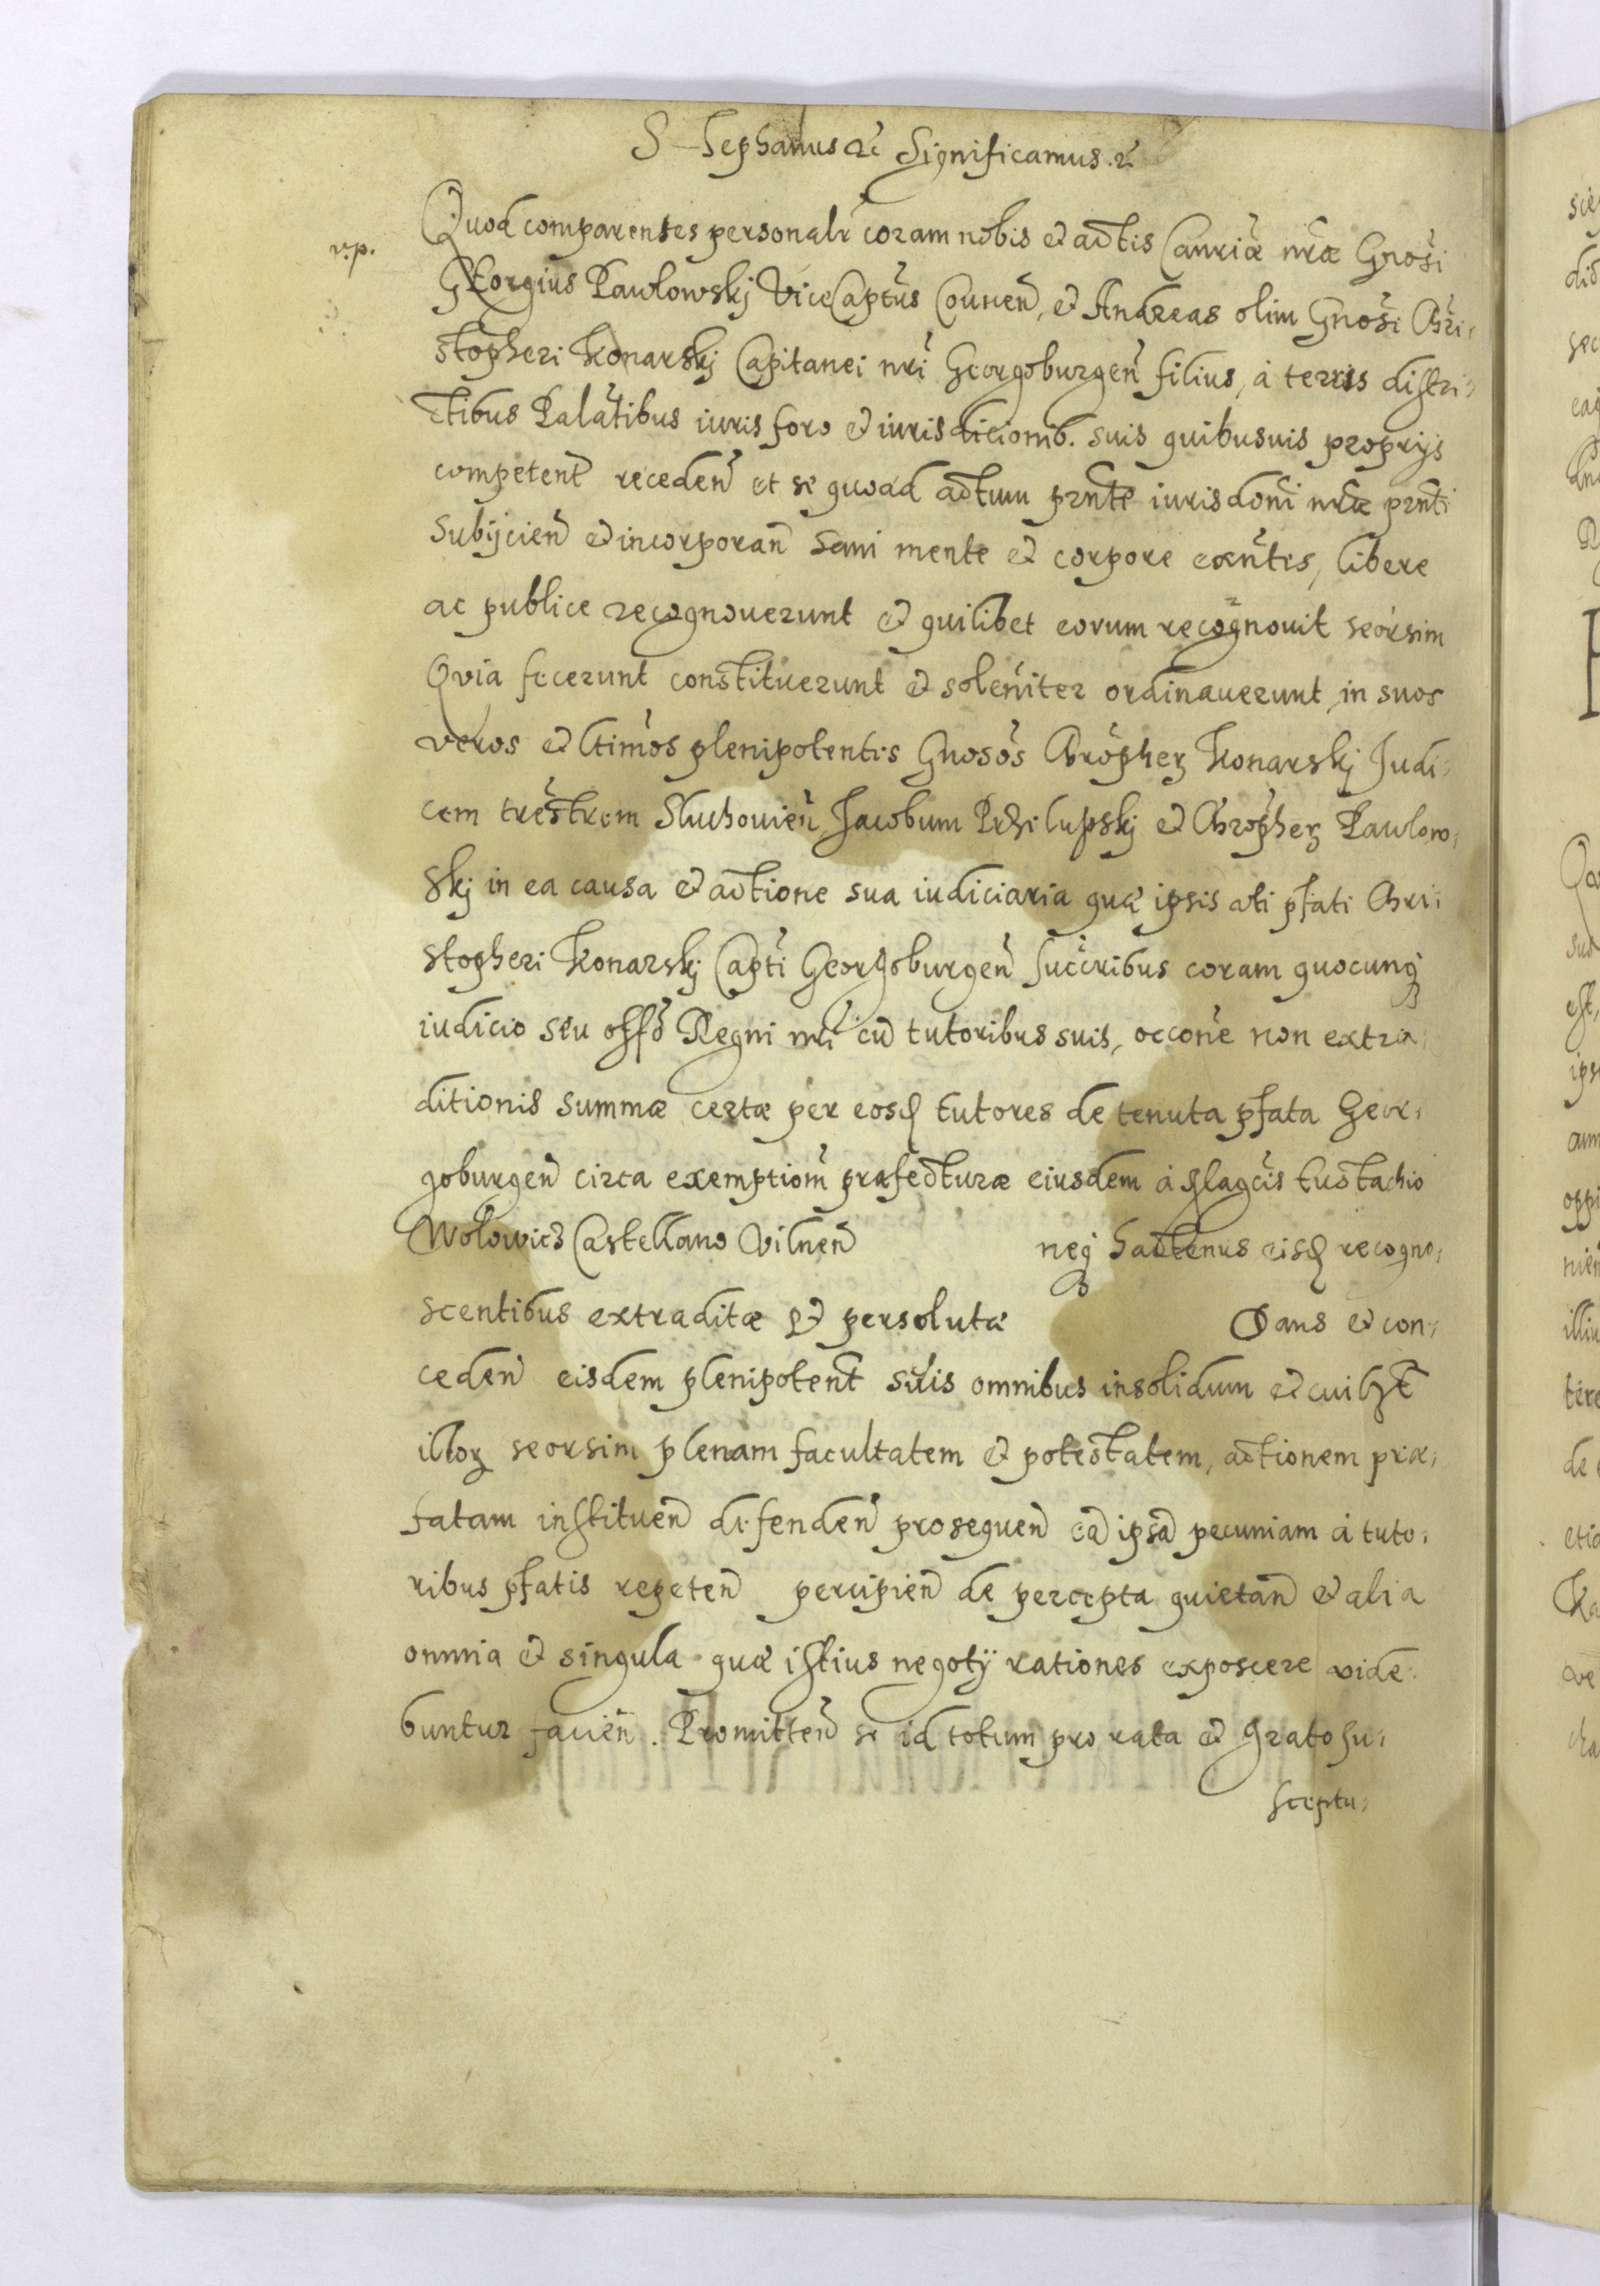 Stephanus etc Significamus. etc
v.p.
Quod comparentes personalr coram nobis et actis Canriæ nræ Gnosi
GEorgius Pawlowskj ViceCaptus Counen, et Andreas olim Gnosi Chri-
stopheri Konarskj Capitanei nri Georgoburgen filius, à terris distri-
ctibus Palatibus iuris foro et iurisdicionib. suis quibusuis proprijs
competent receden et se quoad actum pnte iurisdoni nræ pnti
Subijcien et incorporan Sani mente et corpore exntes, libere
ac publice recognouerunt et quilibet eorum recognouit seorsim
Quia fecerunt constituerunt et soleniter ordinauerunt in suos
veros et ltimos plenipotentes Gnosos Chropherz Konarskj Judi-
cem trestrem Sluchouien Jacobum Przilupskj et Chropherz Pawlow-
skj in ea causa et actione sua iudiciaria quæ ipsis uti pfati Chri-
stopheri Konarskj Capti Georgoburgen succribus coram quocunq
iudicio seu offo Regni nri cu tutoribus suis, occone non extra-
ditionis summæ certæ per eosd tutores de tenuta pfata Geor-
goburgen circa exemptiom præfecturæ eiusdem à Eustachio
Wolowicz Castellano Vilnen neq hactenus eisd recogno-
scentibus extraditæ et persolutæ Dans et con-
ceden eisdem plenipotent suis omnibus insolidum et cuilzt
illorz seorsim plenam facultatem et potestatem, actionem præ-
fatam instituen defenden prosequen ea ipsa pecuniam à tuto-
ribus pfatis repeten percipien de percepta quietan et alia
omnia et singula quæ istius negotÿ rationes exposcere vide-
buntur facien. Promitten se id totum pro rata et grato su-
sceptu-